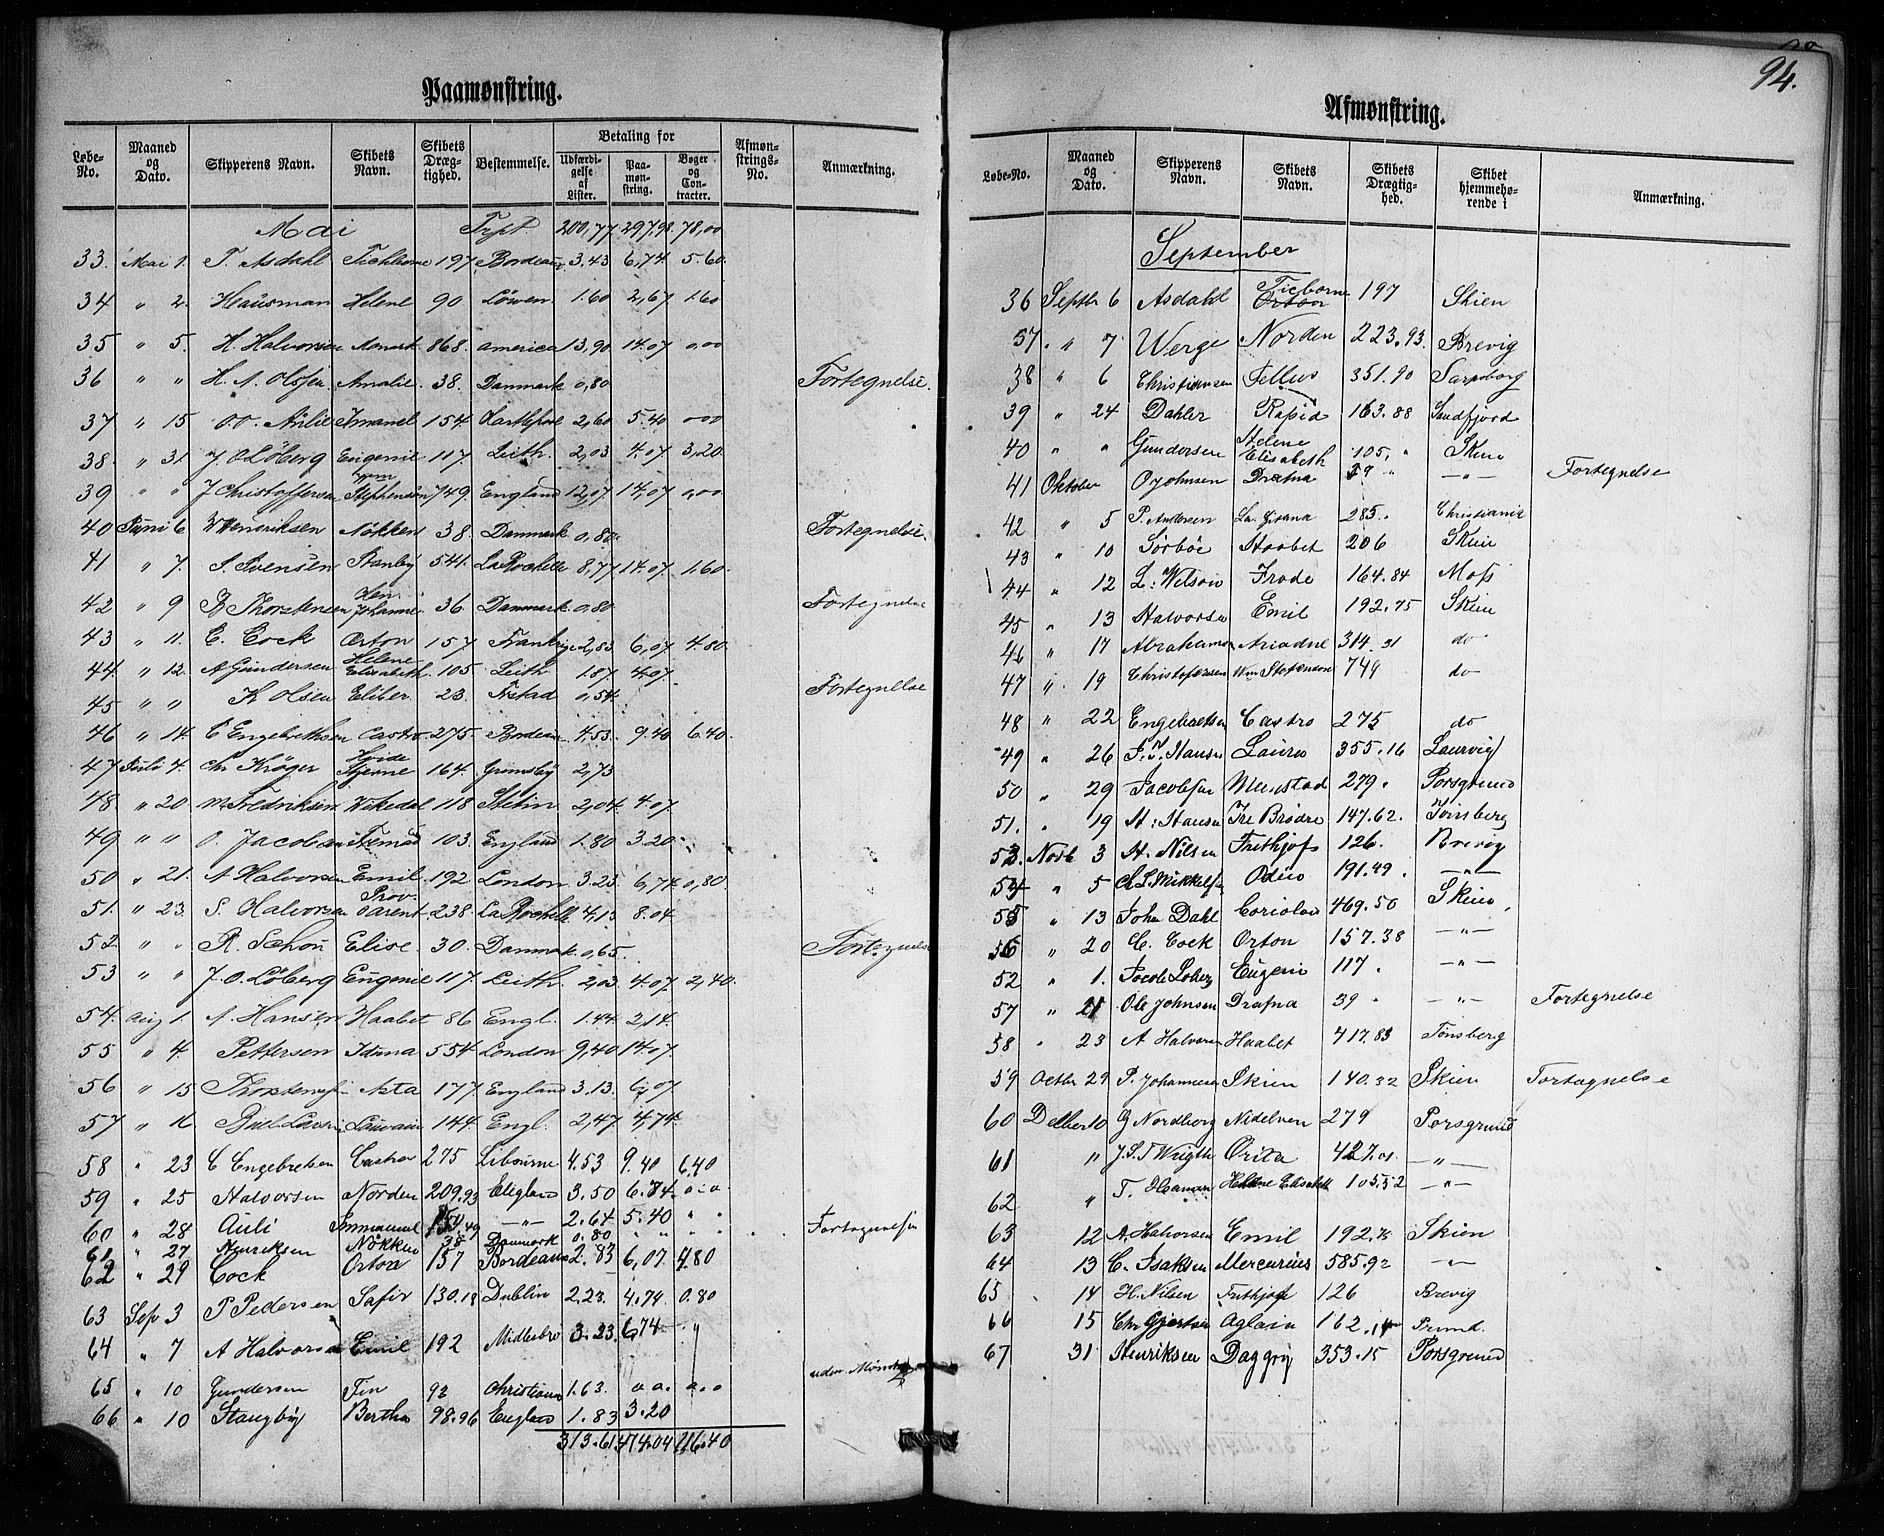 94.
Paamønstring.
Løbe-No. Maaned og Dato. Skipperens Navn. Skibets Navn. Skibets Dræg-tighed. Bestemmelse. Betaling for Udfærdi-gelse af Lister. Paa-møn-string. Bøger og Con-tracter. Afmøn-strings-No. Anmærkning.
Mai Trpt 200,77 297,98 78,00
33. Mai 1. T. Asdahl Tichborne 197 Bordeaux 3.43 6,74 5.60
34 " 2. Hausman Helene 90 Löwen 1.60 2,67 1.60
35 " 5. H. Halvorsen 868. america 13,90 14.07 0,00
36 " " H. A. Olsen Amalie 38. Danmark 0,80 Fortegnelse.
37 " 15 Imanuel 154 2,60 5.40 000
38. " 31. J. O Löberg Eugenie 117. Leith. 2,03 4.07 3,20
39 " " J Christoffersen Wm Stephenson 749. England 12,07 14,07 0,00
40 Juni 6 W Henriksen Nökken 38. Danmark 0,80 Fortegnelse.
41 " 7. S. Svensen Stanby 541. La Rochelle 8,77 14.07 1.60
42 " 9 B. Thorstensen Johanne 36 Danmark 0,80 Fortegnelse
43 " 11. C. Cock Orton 157 Frankrige 2,83 6,07 4.80
44. " 12. A Gundersen Helene Elisabeth 105 Leith 1.87 4.07
45 " " K Olsen Eliber 23 Fistad 0,54 Fortegnelse
46 " 14. C Engebrethsen Castro 275. Bordeaux 4,53 9.40 6.40
47 Juli 4. Chr Kröger Hvide Stjerne 164 Grimsby 2,73
48. " 20 M Fredriksen Vikedal 118 Stetin 2,04 4.07
49 " " O. Jacobsen 103. England 1.80 3.20
50 " 21. A Halvorsen Emil 192 London 3.23 6,74 0,80
51. " 23. S. Halvorsen Prov. 238. La Rochelle 4,13 8.04
52 " " R. Schou Elise 30 Danmark 0,65. Fortegnelse
53 " " J. O. Löberg Eugenie 117. Leith. 2,03 4.07 2,40
54. Aug 1. A. Hansen Haabet 86 Engl. 1.44 2,14
55 " 4. Pettersen Iduna 554 London 9,40 14.07
56 " 15 Thorstensen Asta 177 England 3.13 6,07
57 " 16 Larsen 144. Engl. 2,47 4,74
58 " 23 C Engebretsen Castro 275 Libourne 4.53 9.40 6.40
59 " 25 Halvorsen Norden 209.93 England 3.50 6.74
60 " 28 Auli Immanuel 154.49 —"— 2.64 5.40 " "
61 " 27 Henriksen Nökken 38 Danmark 0.80 " " Fortegnelse
62 " 29 Cock Orton 157 Bordeaux 2.83 6,07 4.80
63 Sep 3 P Pedersen Safir 130.18 Dublin 2.23. 4.74 0.80
64 " 7 A Halvorsen Emil 192 Midlesbro 3.23. 6,74 "
65 " 10 Gundersen Fin 92 Christiania 1.63. uden Mønstr
66 " 10 Stangby Bertha 98.96 England 1.83 3.20
313.61 474.04 116.40
Afmønstring.
Løbe-No. Maaned og Dato. Skipperens Navn. Skibets Navn. Skibets Drægtig-hed. Skibet hjemmehø-rende i Anmærkning.
September
36 Septbr 6 Asdahl Ticborne 197 Skien
57 " 7 Werge Norden 223.93. Brevig
38 " 6 Christiansen Tellus 351.90 Sarpsborg
39 " 24 Dahler Rapid 163.88 Sandfjord
40 " " Gundersen Helene Elisabeth 105, " Skien
41 Oktober O Johnsen Drafna 39 " —"— Fortegnelse
42 " 5 P. Andersen 285. Christiania
43 " 10 Sørbøe Haabet 206 Skien
44 " 12 L. Wilson Frode 164.84 Moss
45 " 13 Halvorsen Emil 192.75 Skien
46 " 17 Abrahamsen Ariadne 314.31 do
47 " 19 Christofersen Wm Stefenson 749 do
48 " 22 Engebretsen Castro 275 do
49 " 26 Hansen Laura 355.16 Laurvig
50 " 29 Jacobsen Munstad 279. Porsgrund
51. " 19 H. Hansen Tre Brødre 147.62. Tønsberg
53. Novb 3 H. Nilsen Frithjof 126. Brevig
54 " 5 Mikkelsen Odin 191.49. —"—
55 " 13 Johan Dahl Coriolan 469.50 Skien
56 " 20 C. Cock Orton 157.38 —"—
52 " 1. Jacob Löberg Eugenie 117. —"—
57 " 21 Ole Johnsen Drafna 39 —"— Fortegnelse
58 " 23 A Halvorsen Haabet 417.83 Tønsberg
59 Octbr 29 P. Johannesen Skien 140.32 Skien Fortegnelse
60 Decbr 10 G Nordberg Nidelven 279 Porsgrund
61 " J. S. T Wrigth Orita 427.01 —"—
62 " T. Hauman Helene Elisabeth 105.52 —"—
63 12 A. Halvorsen Emil 192.75 Skien
64 13 C. Isaksen Mercurius 585.92 —"—
65 14 H. Nilsen Frithjof 126 Brevig
66 15 Chr Gjertsen Aglaia 162.14
67 31 Henriksen Daggry 353.15 Porsgrund